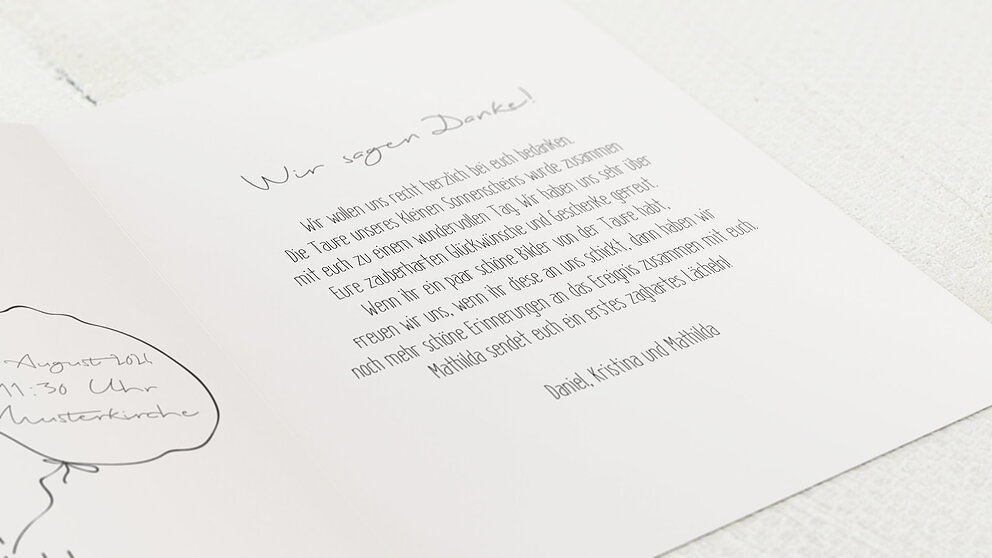 August 2026
11:30 Uhr
Musterkirche
Wir sagen Danke!
Wir wollen uns recht herzlich bei euch bedanken.
Die Taufe unseres kleinen Sonnenscheins wurde zusammen
mit euch zu einem wundervollen Tag. Wir haben uns sehr über
Eure zauberhaften Glückwünsche und Geschenke gefreut.
Wenn ihr ein paar schöne Bilder von der Taufe habt,
freuen wir uns, wenn ihr diese an uns schickt, dann haben wir
noch mehr schöne Erinnerungen an das Ereignis zusammen mit euch.
Mathilda sendet euch ein erstes zaghaftes Lächeln!
Daniel, Kristina und Mathilda